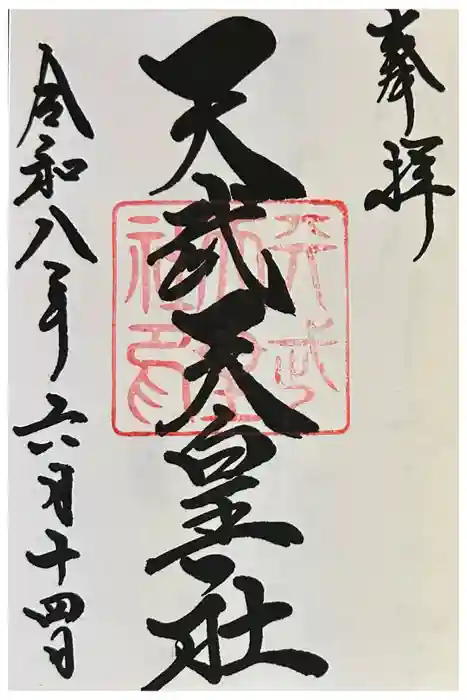 奉拝
天武天皇社
天武天皇社印
令和八年六月十四日